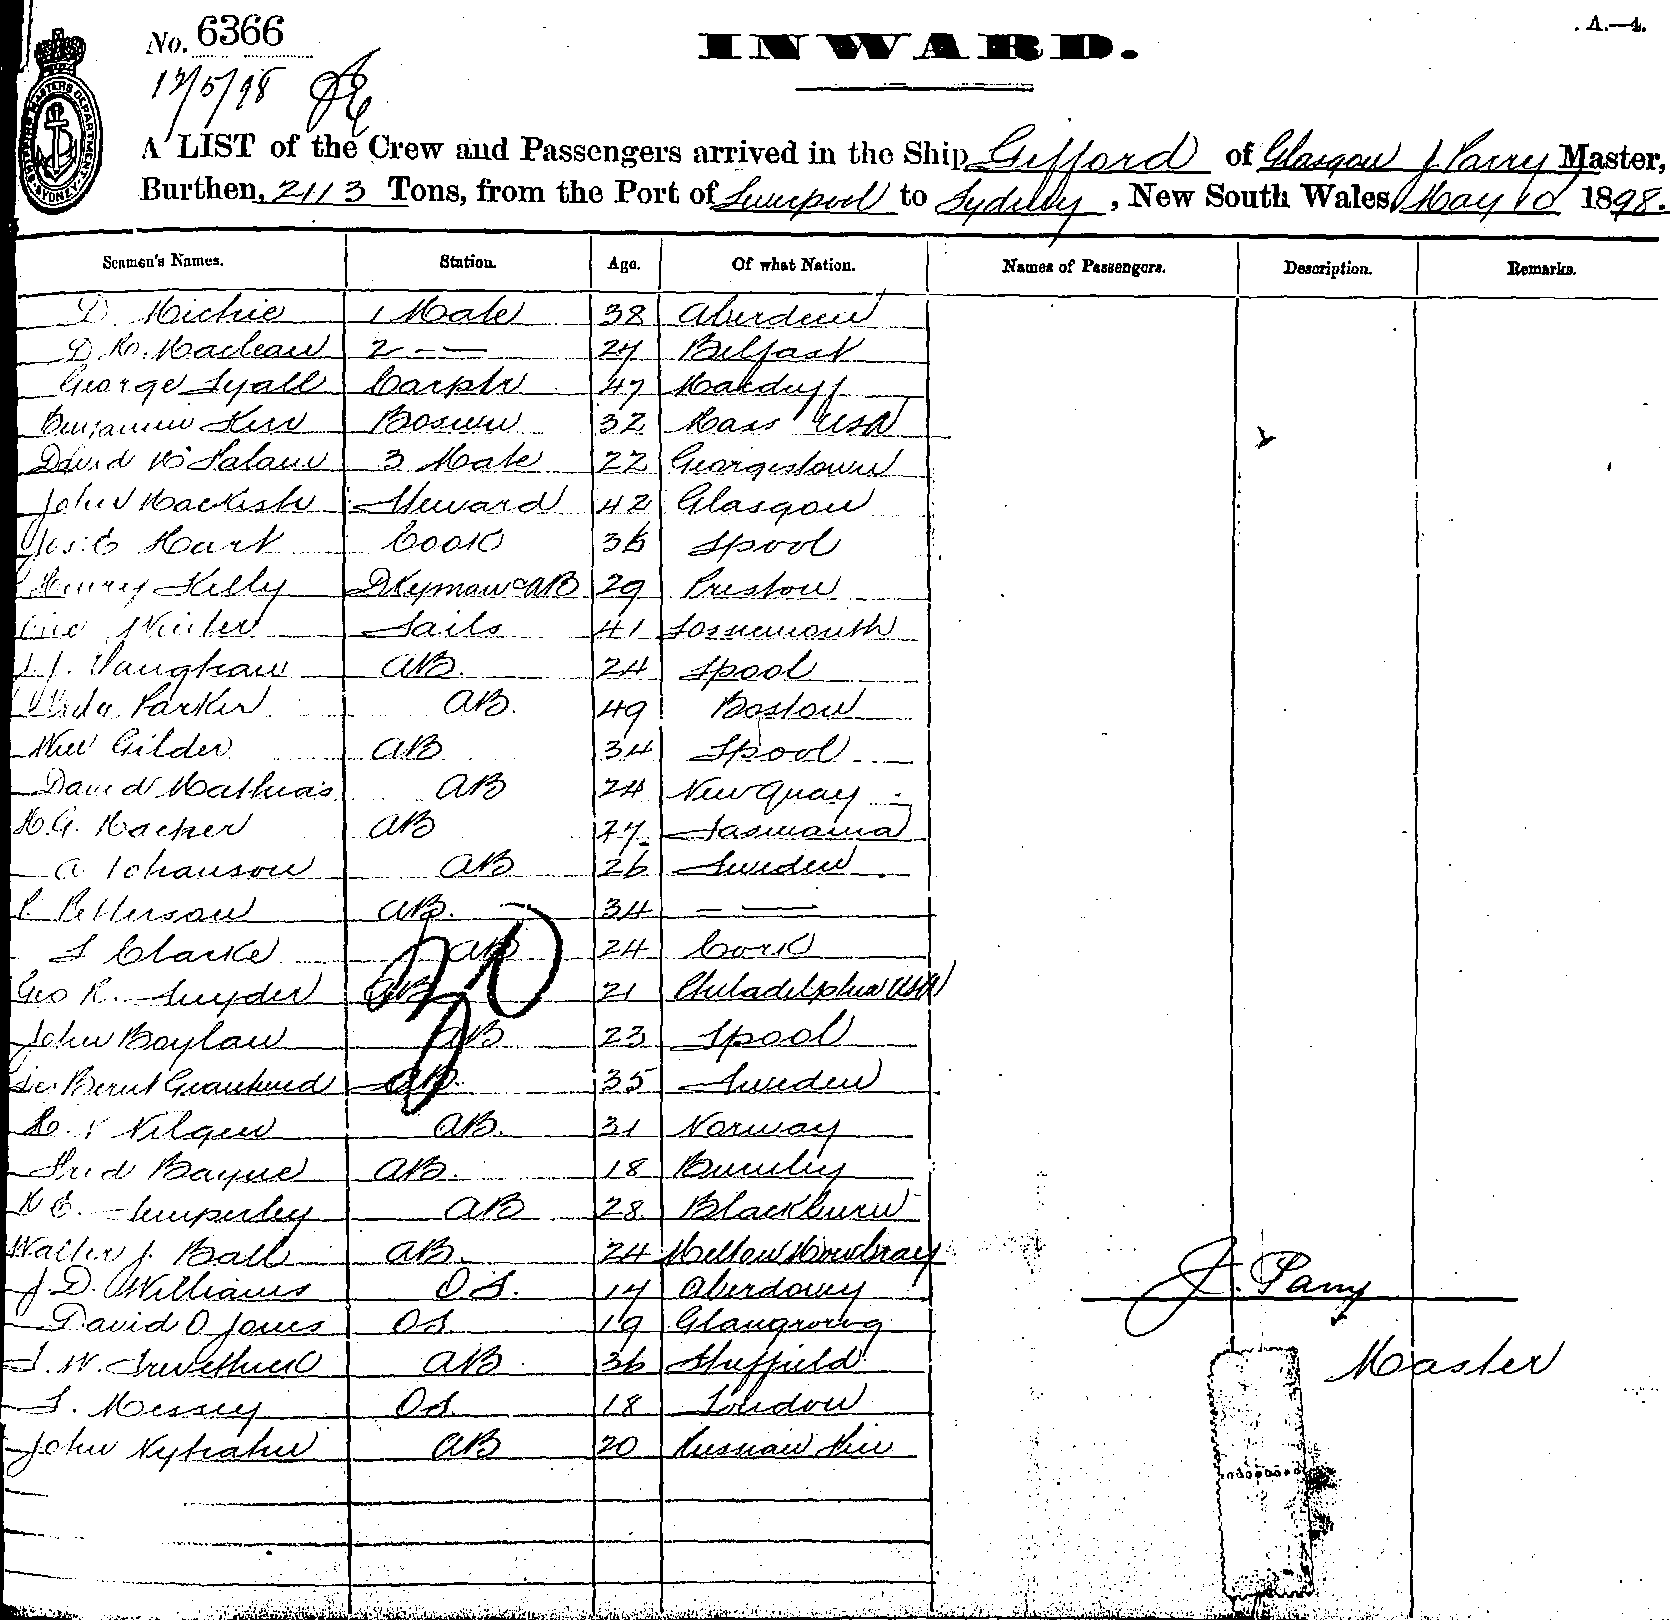 No. 6366
INWARD.
A.—4.
12/5/98
A LIST of the Crew and Passengers arrived in the Ship Gifford of Glasgow J Parry Master,
Burthen, 2113 Tons, from the Port of Liverpool to Sydney, New South Wales, May 10 1898.
Seamen's Names. Station. Age. Of what Nation. Names of Passengers. Description. Remarks.
D. Michie 1 Mate 38 Aberdeen
D. M. Maclean 2 — — 27 Belfast
George Lyall Carptr 47 Macduff
Benjamin Kerr Bosun 32 Mass USA
David 3 Mate 22 Georgestown
John Mackish Steward 42 Glasgow
Jos. E Hart Cook 36 Lpool
Henry Kelly DKeyman & AB 29 Preston
Winter Sails 41 Lossiemouth
J. J. Vaughan AB. 24 Lpool
Parker AB. 49 Boston
Wm Gilder AB 34 Lpool
David Mathias AB 24 New Quay
H. G. Harper AB 27 Tasmania
A Johanson AB 26 Sweden
P Petterson AB. 34 — —
S Clarke AB 24 Cork
Geo R. Snyder AB 21 Philadelphia USA
John Boylan AB 23 Lpool
AB. 35 Sweden
AB. 31 Norway
Fred Bayne AB. 18 Burnley
AB 28 Blackburn
Walter J. Ball AB. 24 Melton Mowbray
J. D. Williams OS. 17 Aberdovey
J. Parry
David O Jones OS 19
J. W. AB 36 Sheffield
Master
S. Messey OS 18 London
John AB 20 Russian Fin